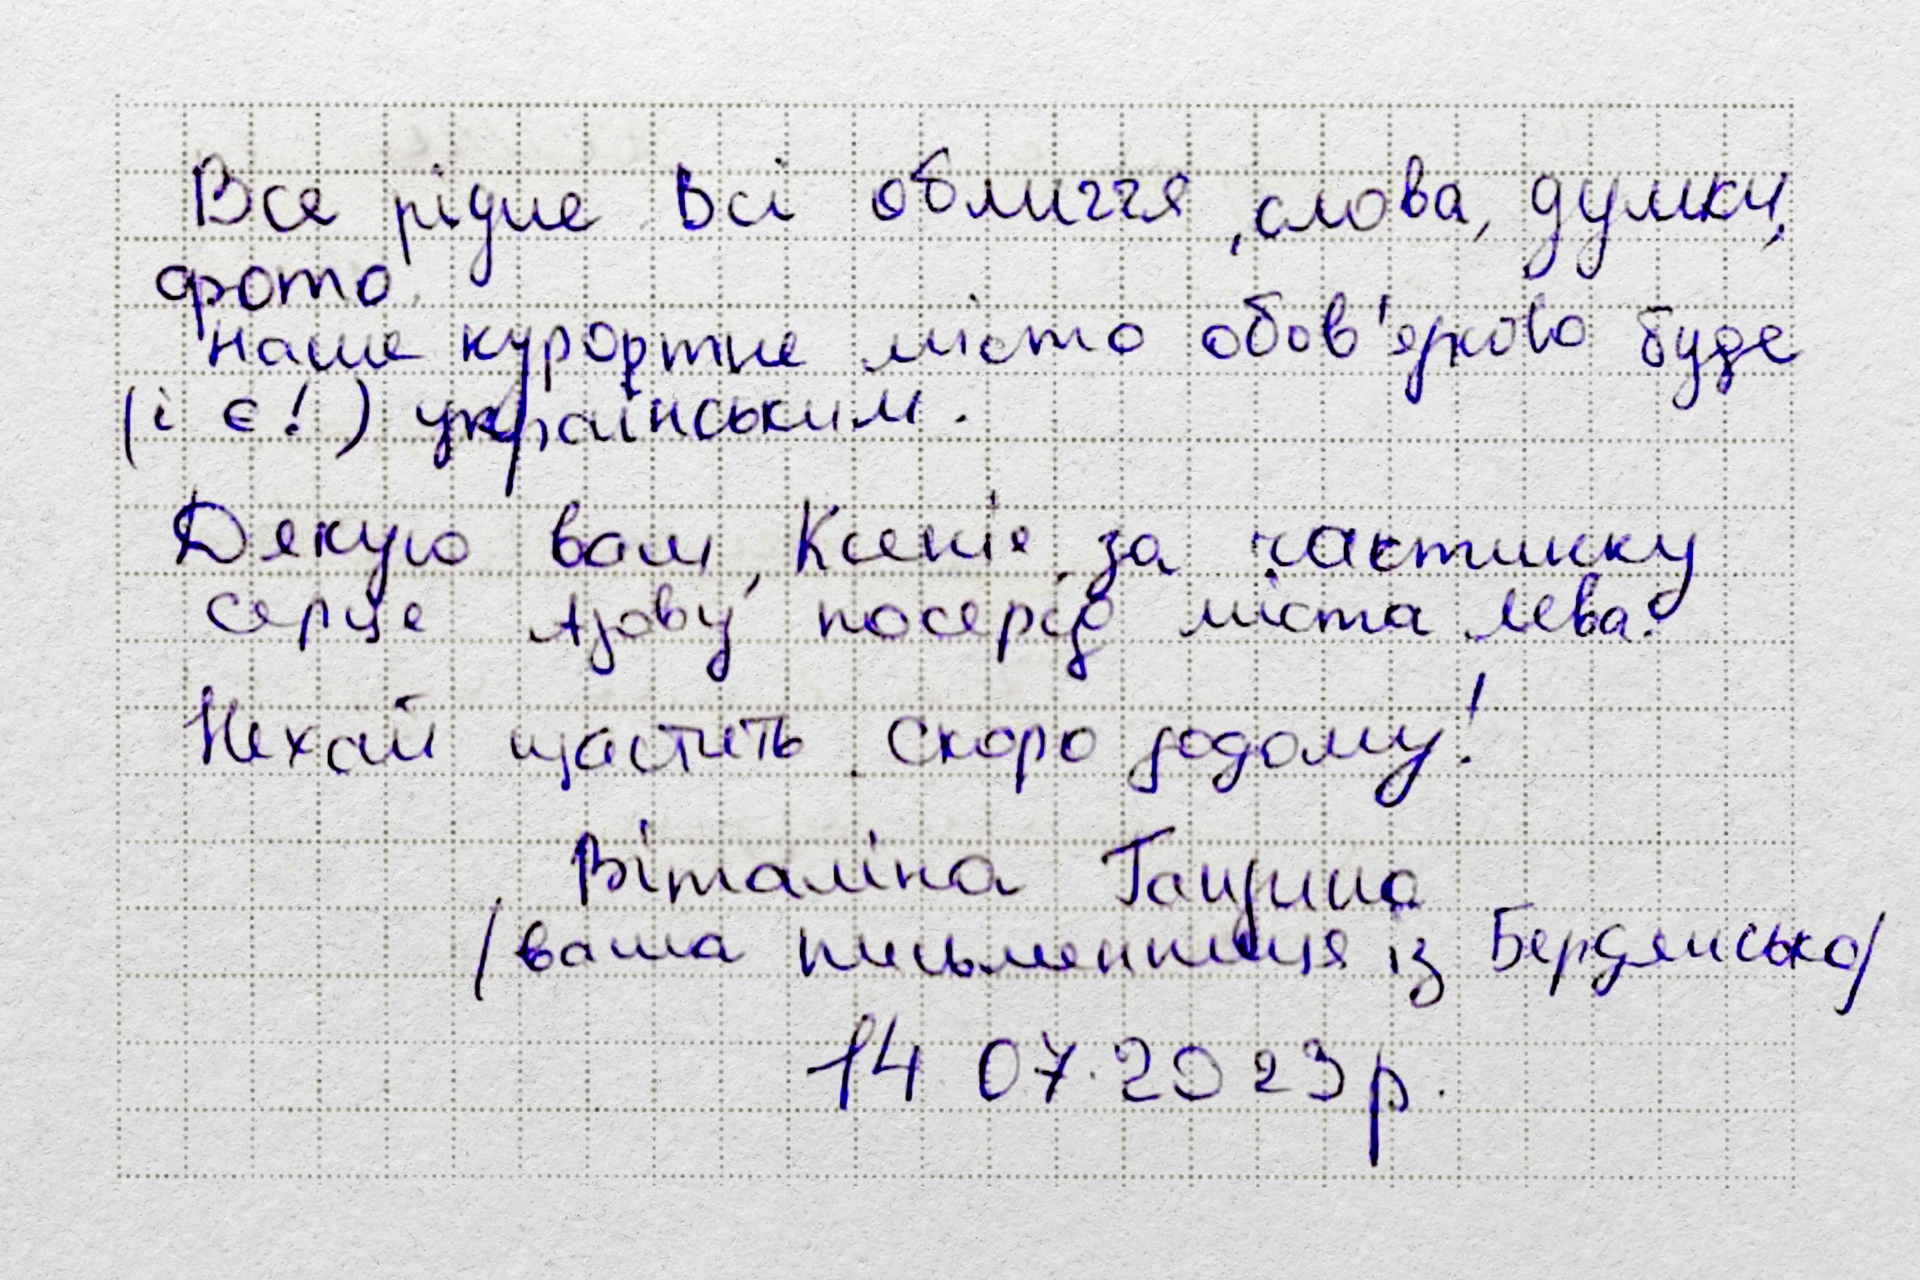 Все рідне Всі обличчя, слова, думки,
фото.
Наше курортне місто обов'язково буде
(і є!) українським.
Дякую вам, Ксеніє, за частинку
серце Азову посеред міста Лева.
Нехай щастить. Скоро додому!
Віталіна
/ваша письменниця із Бердянська/
14.07.2023р.